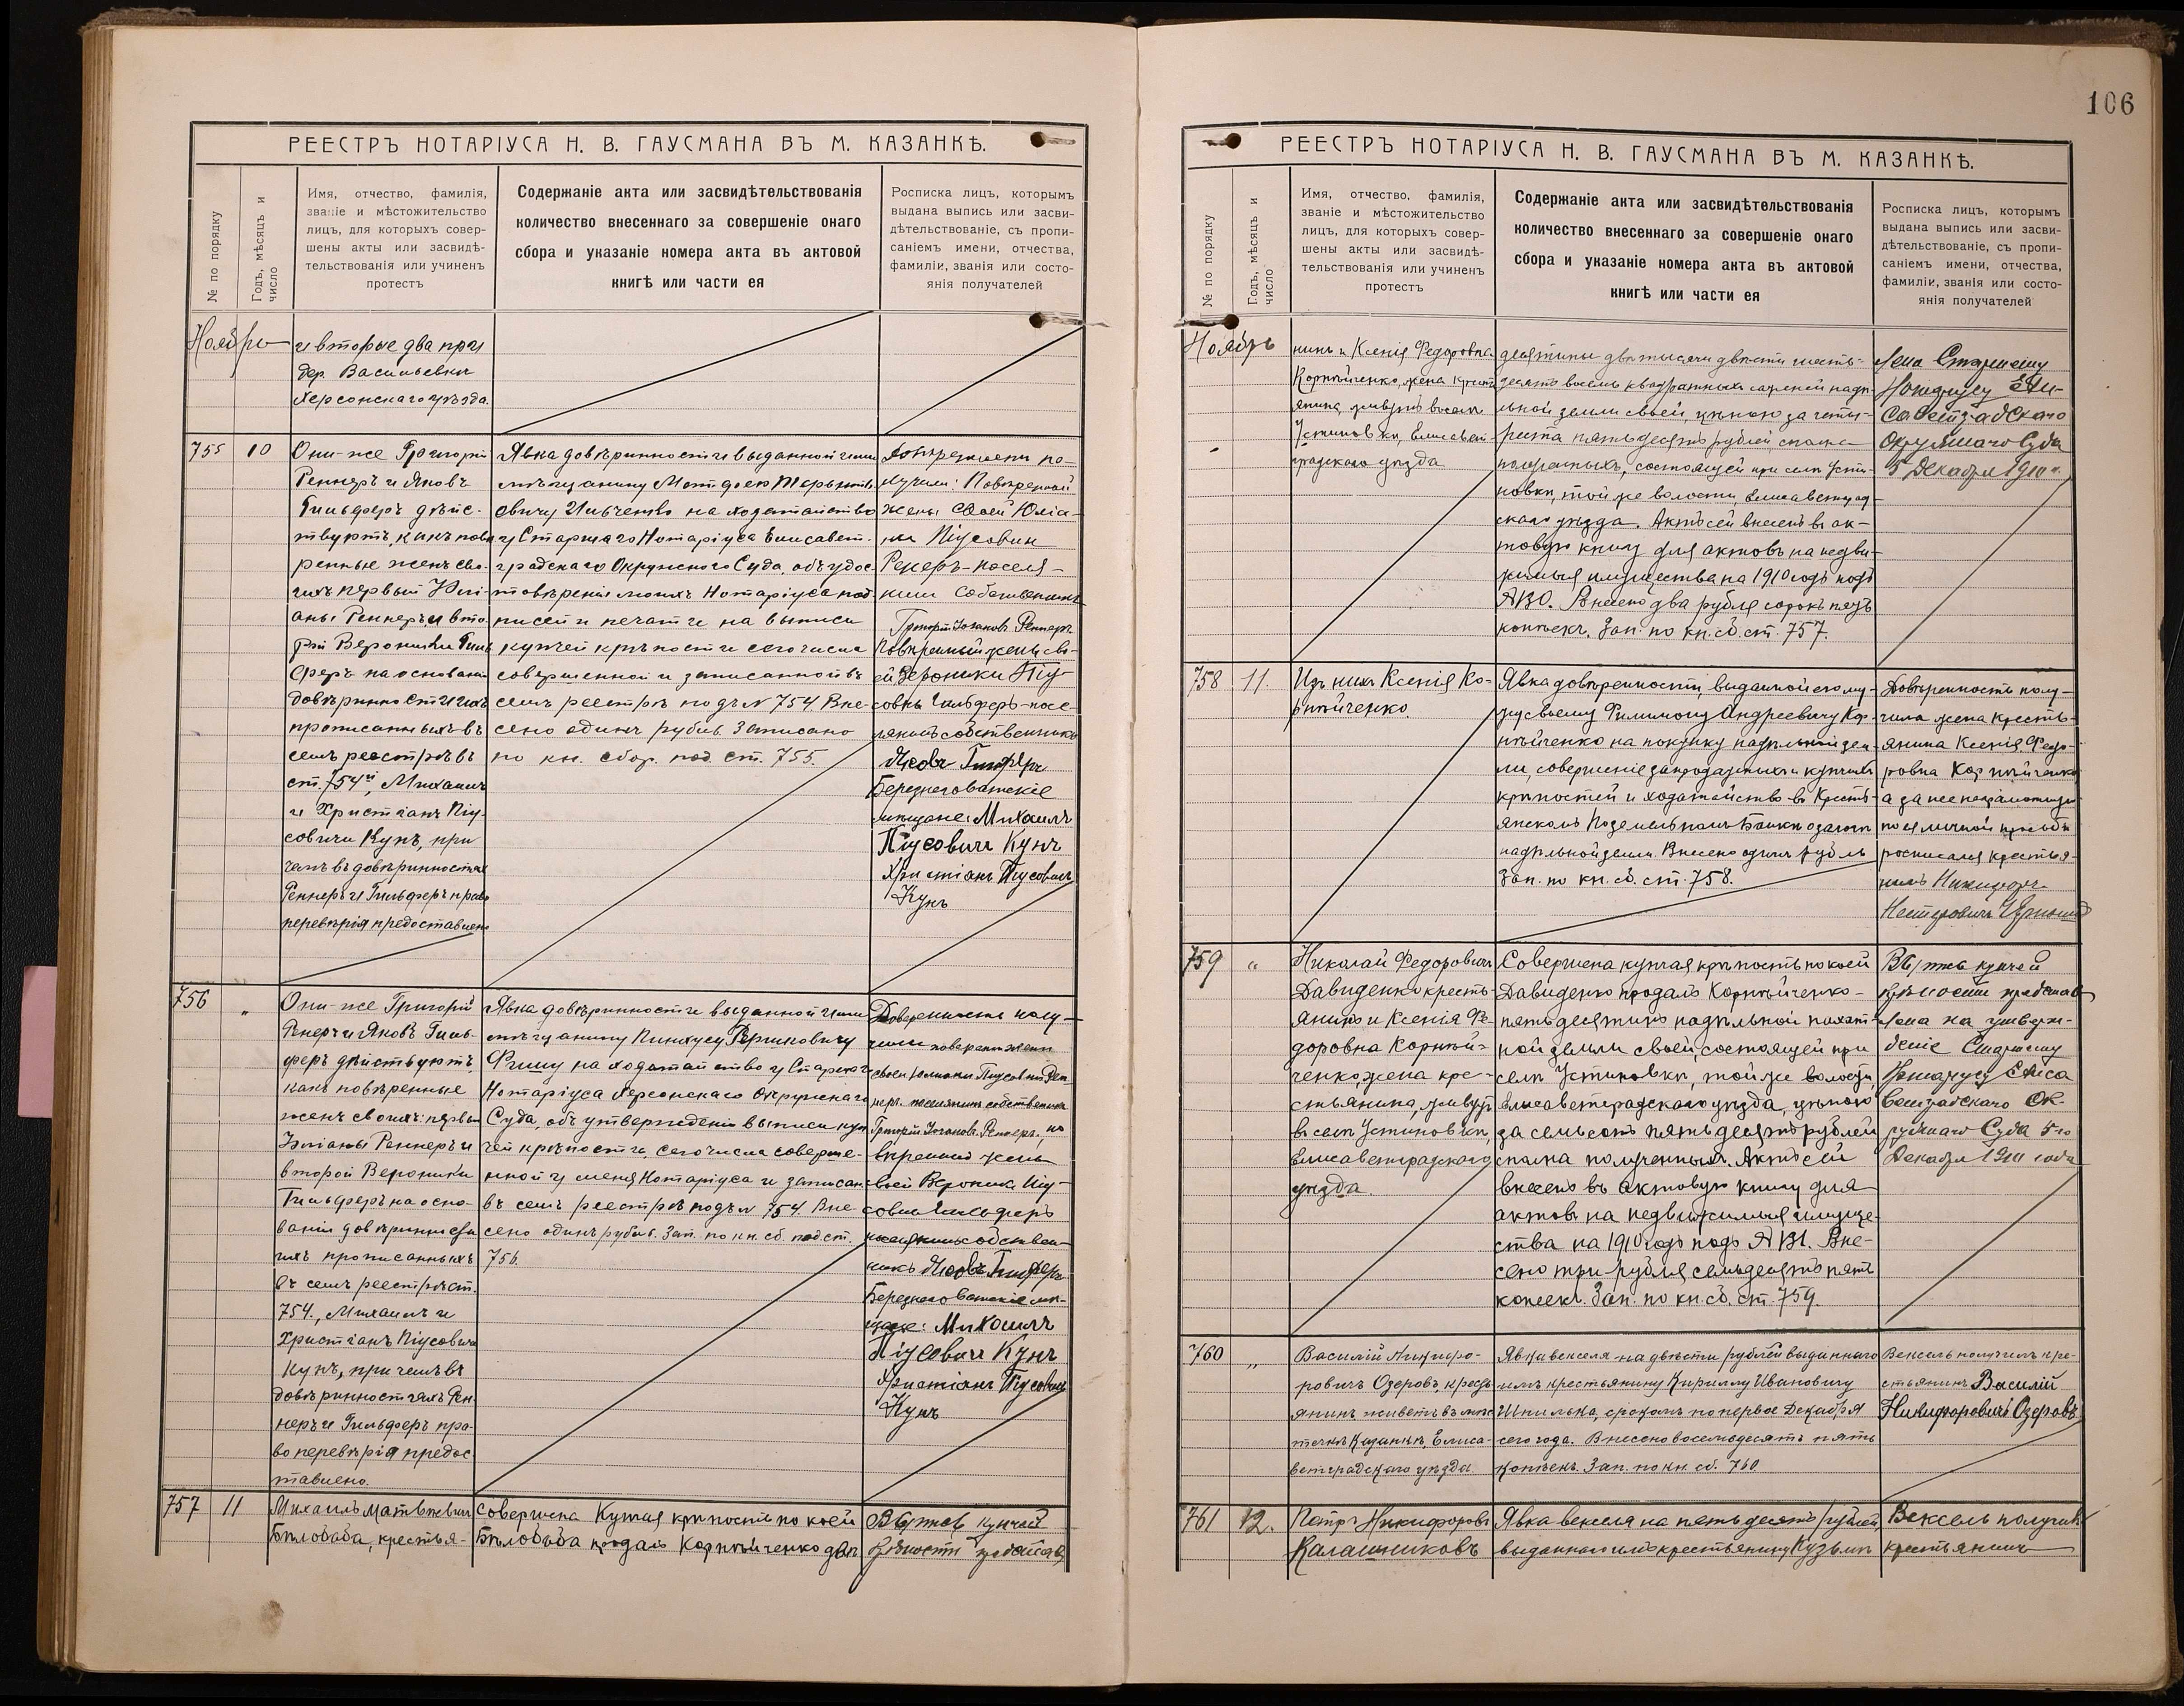 РЕЕСТРЪ НОТАРІУСА Н. В. ГАУСМАНА ВЪ М. КАЗАНКѢ.
№ по порядку
Годъ, мѣсяцъ и число
Имя, отчество, фамилія,
званіе и мѣстожительство
лицъ, для которыхъ совер-
шены акты или засвидѣ-
тельствованія или учиненъ
протестъ
Содержаніе акта или засвидѣтельствованія
количество внесеннаго за совершеніе онаго
сбора и указаніе номера акта въ актовой
книгѣ или части ея
Росписка лицъ, которымъ
выдана выпись или засви-
дѣтельствованіе, съ пропи-
саніемъ имени, отчества,
фамиліи, званія или состо-
янія получателей
Ноября
и вторые два при
дер. Васильевки
Херсонскаго уѣзда.
755
10
Они-же Григорій
Реннеръ и Яковъ
Гильферъ дѣйс-
твуютъ, какъ повѣ
ренные женъ сво-
ихъ первый Юлі-
аны Реннеръ и вто-
рой Вероники Гиль
феръ на основаніи
довѣренностей ихъ
прописанныхъ въ
семъ реестрѣ въ
ст. 754й, Михаилъ
и Христіанъ Піу-
совичи Кунъ, при
чемъ въ довѣренностяхъ
Реннеръ и Гильферъ право
перевѣрія предоставлено
Явка довѣренности выданной ими
мѣщанину
овичу на ходатайство
у Старшаго Нотаріуса Елисавет-
градскаго Окружного Суда, объ удос-
товѣреніи моихъ Нотаріуса под-
писей и печати на выписи
купчей крѣпости сего числа
совершенной и записанной въ
семъ реестрѣ подъ № 754. Вне-
сено одинъ рубль. Записано
по кн. сбор. под. ст. 755.
Довѣренность по-
лучили: Повѣренный
жены своей Юліа-
ны Піусовны
Реннеръ-поселя-
нинъ собственникъ
Григорій Реннеръ
Повѣренный жены сво-
ей Вероники Піу-
совны Гильферъ-посе-
лянинъ собственникъ
Яковъ Гильферъ
Березнеговатскіе
мѣщане: Михаилъ
Піусовичъ Кунъ
Христіанъ Піусовичъ
Кунъ
756
"
Они-же Григорій
Ренеръ и Яковъ Гиль-
феръ дѣйствуютъ
какъ повѣренные
женъ своихъ: первый
Юліаны Реннеръ и
второй Вероники
Гильферъ на осно-
ваніи довѣренностей
ихъ прописанныхъ
въ семъ реестрѣ ст.
754., Михаилъ и
Христіанъ Піусовичи
Кунъ, при чемъ въ
довѣренностяхъ Рен-
неръ и Гильферъ пра-
во перевѣрія предос
тавлено.
Явка довѣренности выданной ими
мѣщанину Пинхусу
на ходатайство у Старшаго
Нотаріуса Херсонскаго Окружнаго
Суда, объ утвержденіи выписи куп
чей крѣпости, сего числа соверше-
нной у меня Нотаріуса и записан.
въ семъ реестрѣ подъ № 754. Вне-
сено одинъ рубль. Зап. по кн. сб. под ст.
756.
Довѣренность полу-
чили повѣрен. жены
своей Юліаны Піусовны Рен
неръ. поселянинъ собственникъ
Григорій Реннеръ, по
вѣренный жены
своей Вероники Піу-
совны Гильферъ
поселянинъ собствен-
никъ Яковъ Гильферъ
Березнеговатскіе мѣ-
щане: Михаилъ
Піусовичъ Кунъ
Христіанъ Піусовичъ
Кунъ
757
11
Михаилъ Матвѣевичъ
Бѣлобаба, крестья-
Совершена Купчая крѣпость по коей
Бѣлобаба продалъ Корнѣйченко двѣ
Выпись купчей
крѣпости представ
106
РЕЕСТРЪ НОТАРІУСА Н. В. ГАУСМАНА ВЪ М. КАЗАНКѢ.
№ по порядку
Годъ, мѣсяцъ и число
Имя, отчество, фамилія,
званіе и мѣстожительство
лицъ, для которыхъ совер-
шены акты или засвидѣ-
тельствованія или учиненъ
протестъ
Содержаніе акта или засвидѣтельствованія
количество внесеннаго за совершеніе онаго
сбора и указаніе номера акта въ актовой
книгѣ или части ея
Росписка лицъ, которымъ
выдана выпись или засви-
дѣтельствованіе, съ пропи-
саніемъ имени, отчества,
фамиліи, званія или состо-
янія получателей
Ноябрь
нинъ и Ксенія Федоровна
Корнѣйченко, жена крест
янина, живутъ въ селѣ
Устиновкѣ, Елисавет-
градскаго уѣзда
десятины двѣ тысячи двѣсти шесть-
десятъ восемь квадратныхъ саженей надѣ-
льной земли своей, цѣною за четы-
реста пятьдесятъ рублей, сполна
полученныхъ, состоящей при селѣ Усти-
новкѣ, той же волости, Елисаветград-
скаго уѣзда. Актъ сей внесенъ въ ак-
товую книгу для актовъ на недви-
жимыя имущества на 1910 годъ подъ
№ 80. Внесено два рубля сорокъ пять
копѣекъ. Зап. по кн. сб. ст. 757.
лена Старшему
Нотаріусу Ели-
саветградскаго
Окружнаго Суда
5 Декабря 1910 г.
758
11.
Изъ нихъ Ксенія Ко-
рнѣйченко.
Явка довѣренности, выданной ею му-
жу своему Филимону Андреевичу Кор-
нѣйченко на покупку надѣльной зем-
ли, совершеніе запродажныхъ и купчихъ
крѣпостей и ходатайство въ Кресть-
янскомъ Поземельномъ Банкѣ о залогѣ
надѣльной земли. Внесено одинъ рубль
Зап. по кн. сб. ст. 758.
Довѣренность полу-
чила жена кресть-
янина Ксенія Федо-
ровна Корнѣйченко
а за нее неграмотную
по ея личной просьбѣ
росписался крестья-
нинъ Никифоръ
Нестеровичъ
759
"
Николай Федоровичъ
Давиденко кресть-
янинъ и Ксенія Фе-
доровна Корнѣй-
ченко, жена кре-
стьянина, живутъ
въ селѣ Устиновкѣ,
Елисаветградскаго
уѣзда.
Совершена купчая крѣпость по коей
Давиденко продалъ Корнѣйченко-
пять десятинъ надѣльной пахат-
ной земли своей, состоящей при
селѣ Устиновкѣ, той же волости,
Елисаветградскаго уѣзда, цѣною
за семьсотъ пятьдесятъ рублей
сполна полученныхъ. Актъ сей
внесенъ въ актовую книгу для
актовъ на недвижимыя имуще-
ства на 1910 годъ подъ № 81. Вне-
сено три рубля семьдесятъ пять
копеекъ. Зап. по кн. сб. ст. 759.
Выпись купчей
крѣпости представ
лена на утверж-
деніе Старшему
Нотаріусу Елиса
ветградскаго Ок-
ружнаго Суда 5-го
Декабря 1910 года
760
"
Василій Никифо-
ровичъ Озеровъ, кресть
янинъ живетъ въ мѣс
течкѣ Казанкѣ, Елиса-
ветградскаго уѣзда.
Явка векселя на двѣсти рублей выданнаго
имъ крестьянину Кириллу Ивановичу
Шпилька, срокомъ по первое Декабря
сего года. Внесено восемьдесятъ пять
копѣекъ. Зап. по кн. сб. 760.
Вексель получилъ кре-
стьянинъ Василій
Никифоровичъ Озеровъ
761
12.
Петръ Никифоровъ
Калашниковъ
Явка векселя на пятьдесятъ рублей,
выданнаго имъ крестьянину Кузьмѣ
Вексель получилъ
крестьянинъ